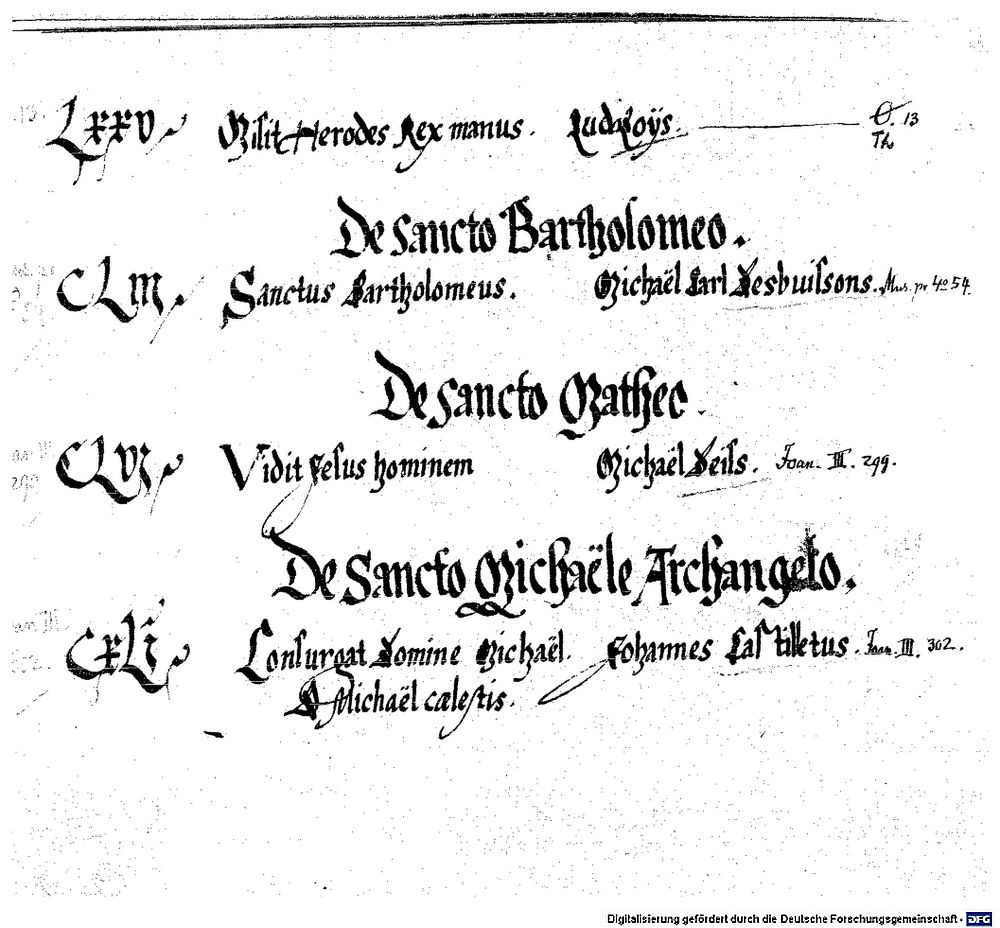 Lxxv Misit Herodes Rex manus. Lud: Roÿs. C. 13
Th
De Sancto Bartholomeo.
CLIII Sanctus Bartholomeus. Michaël Carl Desbuissons. Mus. pr 4° 54.
De Sancto Matheo.
CLVI Vidit Jesus hominem Michaël Deiss. Joan. III. 299.
De Sancto Michaële Archangelo.
Consurgat Domine Michaël. Johannes Castilletus. Joan. III. 302.
Michaël cælestis.
Digitalisierung gefördert durch die Deutsche Forschungsgemeinschaft - DFG